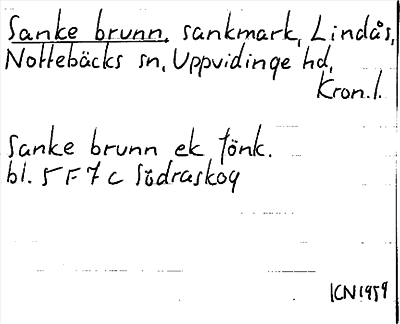 Sanke brunn, sankmark, Lindås,
Nottebäcks sn, Uppvidinge hd,
Kron.l.
Sanke brunn ek tönk.
bl. 5 F 7 c Södraskog
ICN 1959